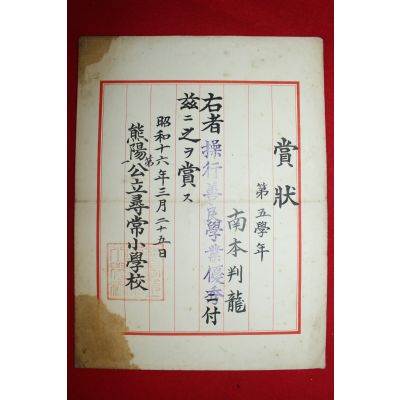 賞狀
第五學年
南本判龍
右者操行善良學業優秀ニ付
玆ニ之ヲ賞ス
昭和十六年三月二十五日
熊陽第公立尋常小學校